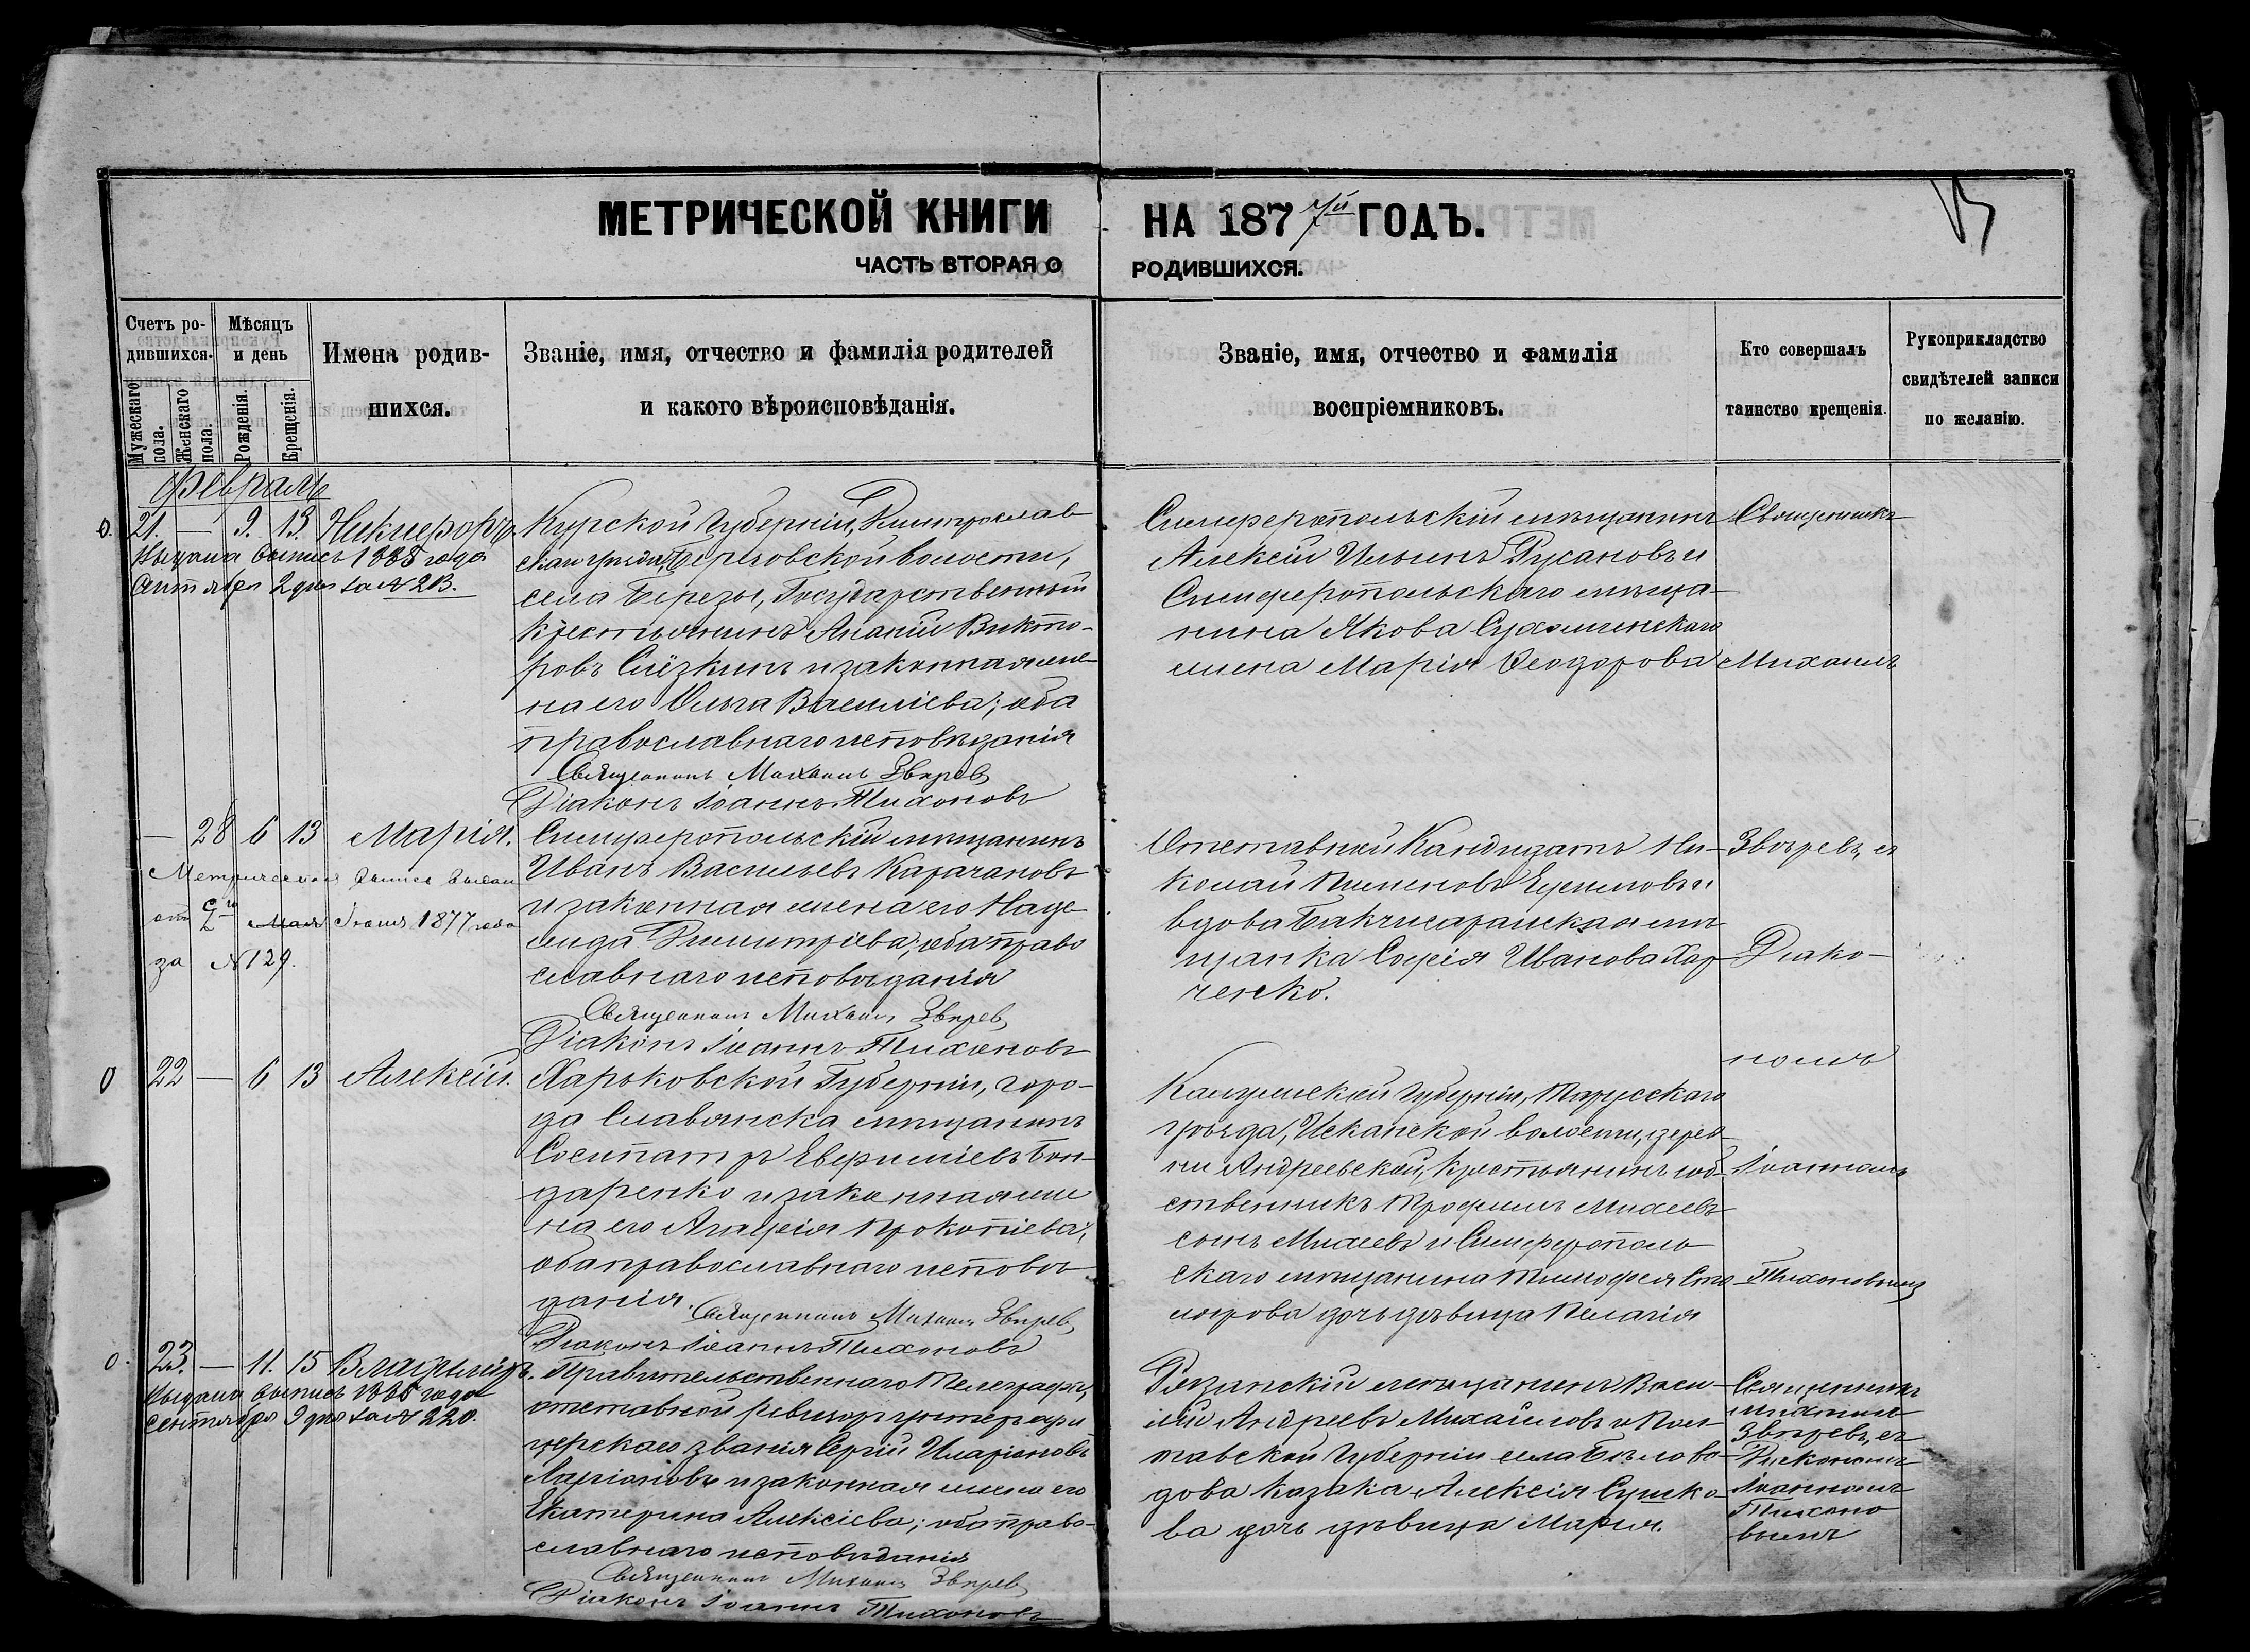 МЕТРИЧЕСКОЙ КНИГИ
НА 1877й ГОДЪ.
ЧАСТЬ ВТОРАЯ О
РОДИВШИХСЯ.
Счетъ ро-
дившихся.
Мужескаго
пола.
Женскаго
пола.
Мѣсяцъ
и день
Рожденія.
Крещенія.
Имена родив-
шихся.
Званіе, имя, отчество и фамилія родителей
и какого вѣроисповѣданія.
Званіе, имя, отчество и фамилія
воспріемниковъ.
Кто совершалъ
таинство крещенія.
Рукоприкладство
свидѣтелей записи
по желанію.
Февраль
21. — 9. 13. Никифоръ.
Выдана выпись 1885 года
Сентября 2 дня за №
Курской Губерніи, Дмитровслав
скаго уѣзда, Береговской волости,
села Березы, Государственный
крестьянинъ Ананій Викто-
ровъ и законная же-
на его Ольга Василіева; оба
православнаго исповѣданія
Священникъ Михаилъ Звѣрев
Діаконъ Іоаннъ Тихоновъ
Симферопольскій мѣщанинъ
Алексѣй Ильинъ Русановъ и
Симферопольскаго мѣща-
нина Якова
жена Марія Ѳеодорова
Священникъ
Михаилъ
— 28 6 13 Марія.
Метрическая выпись выдан
отъ 2го Мая Іюня 1877 года
за № 129.
Симферопольскій мѣщанинъ
Иванъ Васильевъ Карачановъ
и законная жена его Наде-
жда Димитріева; оба право
славнаго исповѣданія
Священникъ Михаилъ Звѣрев
Діаконъ Іоаннъ Тихоновъ
Отставной Кандидатъ Ни-
колай Пименовъ и
вдова Бакчисарайская мѣ-
щанка Софія Иванова Хар-
ченко.
Звѣревъ, съ
Діако-
номъ
22 — 6 13 Алексѣй.
Харьковской Губерніи, горо-
да Славянска мѣщанинъ
Сосипатръ Бон-
даренко и законная же
на его Агафія Прокопіева;
оба православнаго исповѣ
данія.
Священникъ Михаилъ Звѣрев
Діаконъ Іоаннъ Тихоновъ
Калужской Губерніи, Тарусскаго
уѣзда, Исканской волости, дерев-
ни Андреевской, крестьянинъ соб-
ственникъ Трофимъ Михеевъ
сынъ Михеевъ и Симферополь
скаго мѣщанина Тимофея
дочь дѣвица Пелагія
Іоанномъ
Тихоновымъ
23. — 11. 15 Владиміръ.
Выдана выпись 1885 года
Сентября 9 дня за № 220.
Правительственнаго Телеграфа,
отставной ревизоръ унтеръ офи
церскаго званія Сергій Иларіоновъ
Ларіоновъ и законная жена его
Екатерина Алексіева; оба право-
славнаго исповѣданія
Священникъ Михаилъ Звѣрев
Діаконъ Іоаннъ Тихоновъ
Рязанскій мѣщанинъ Васи-
лій Андреевъ Михайловъ и Пол-
тавской Губерніи села
казака Алексія Сушко-
ва дочь дѣвица Марія.
Священникъ
Михаилъ
Звѣревъ, съ
Діакономъ
Іоанномъ
Тихоно
вымъ